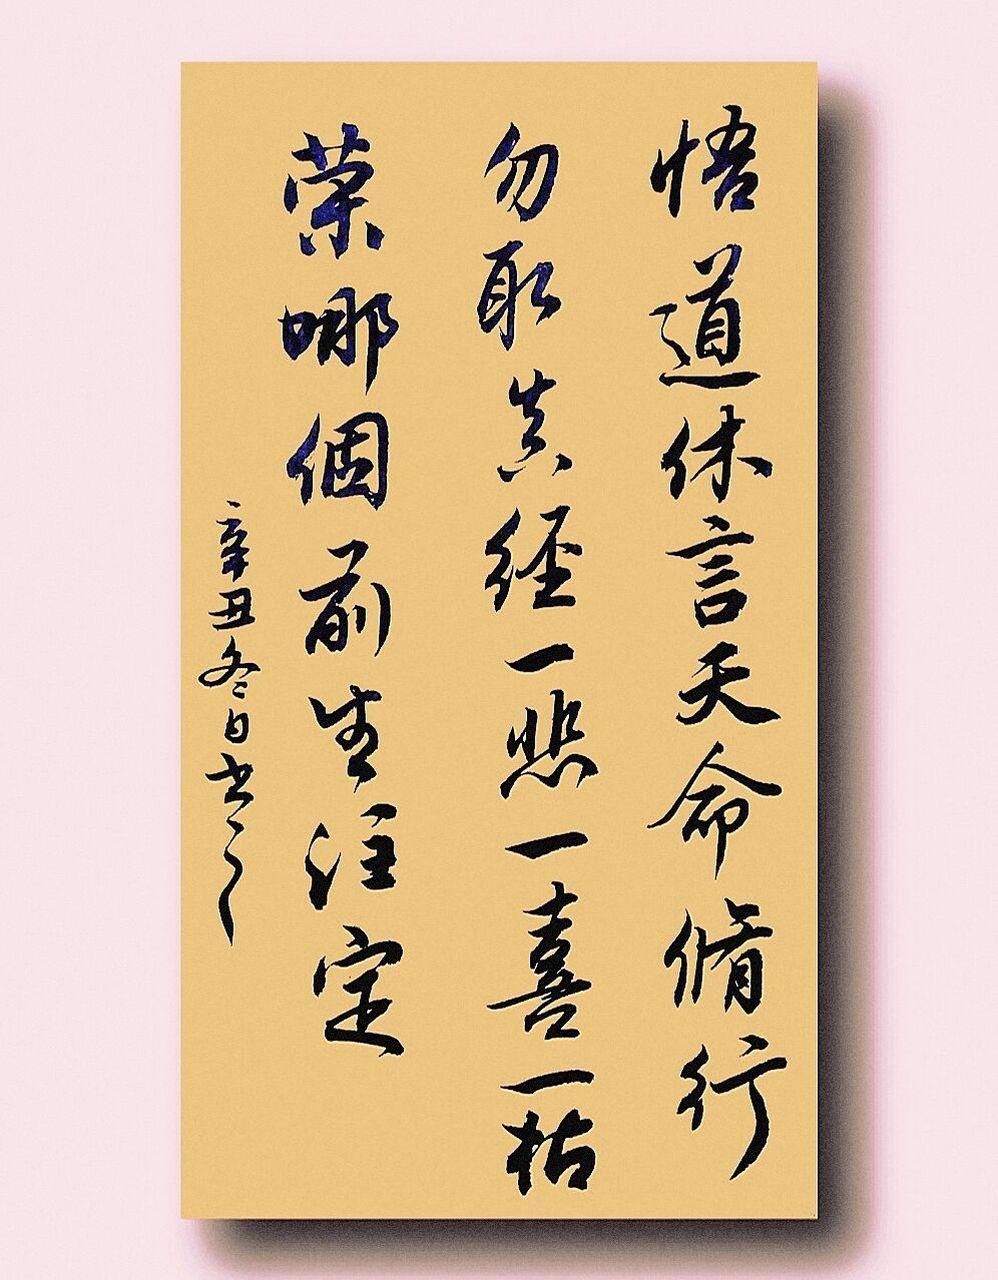 悟道休言天命脩行
勿取真經一悲一喜一枯
榮哪個前生注定
辛丑冬日书之